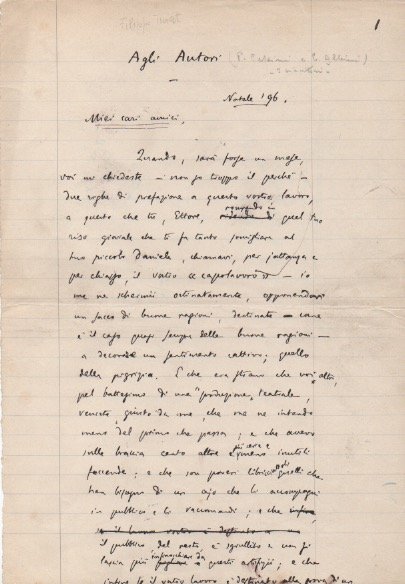 1
Agli Autori
Natale '96.
Miei cari amici,
Quando, sarà forse un mese,
voi mi chiedeste — non so troppo il perché —
due righe di prefazione a questo vostro lavoro,
a questo che tu, Ettore, ridendo di quel tuo
riso gioviale che ti fa tanto somigliare al
tuo piccolo Daniele, chiamavi, per jattanza e
per chiasso, il vostro « capolavoro » — io
me ne schermii ostinatamente, opponendovi
un sacco di buone ragioni, destinate — come
è il caso quasi sempre delle buone ragioni —
a decorare un sentimento cattivo: quello
della pigrizia. E che strano che voi altri,
pel battesimo di una produzione teatrale,
veniste giusto da me, che me ne intendo
meno del primo che passa; e che avevo
sulle braccia cento altre più serie e meno inutili
faccende; e che son poveri libricciuoli quelli che
han bisogno di un che li accompagni
in pubblico e li raccomandi; e che
il pubblico del resto è smaliziato e non si
lascia più a questi artifizi; e che
il vostro lavoro è destinato alla prova di un